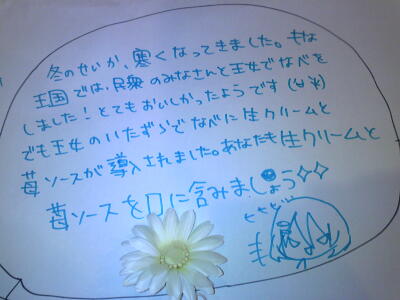 冬のせいか、寒くなってきました。もな
王国では、民衆のみなさんと王女でなべを
しました!とてもおいしかったようです(^w^)
でも王女のいたずらでなべに生クリームと
苺ソースが導入されました。あなたも生クリームと
苺ソースを口に含みましょう✧✧